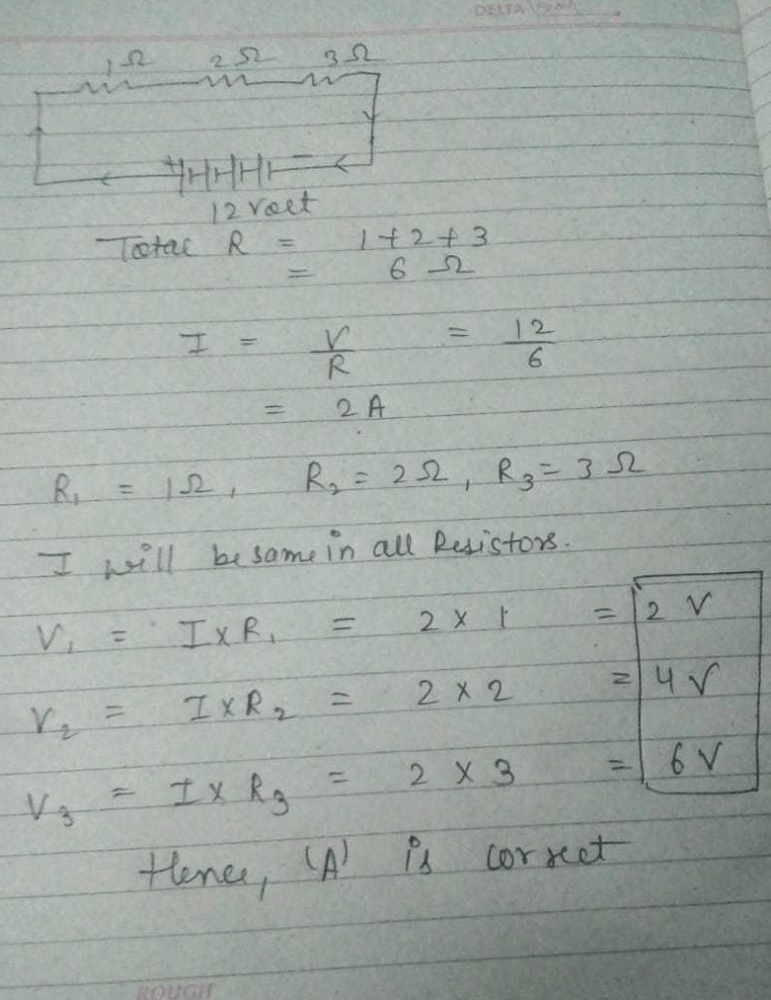 DELTA
1Ω 2Ω 3Ω
+ −
12 volt
Total R = 1+2+3
= 6 Ω
I = V/R = 12/6
= 2 A
R₁ = 1Ω, R₂ = 2Ω, R₃ = 3 Ω
I will be same in all Resistors.
V₁ = I×R₁ = 2 × 1 = 2 V
V₂ = I×R₂ = 2 × 2 = 4 V
V₃ = I× R₃ = 2 × 3 = 6 V
Hence, 'A' is correct
ROUGH